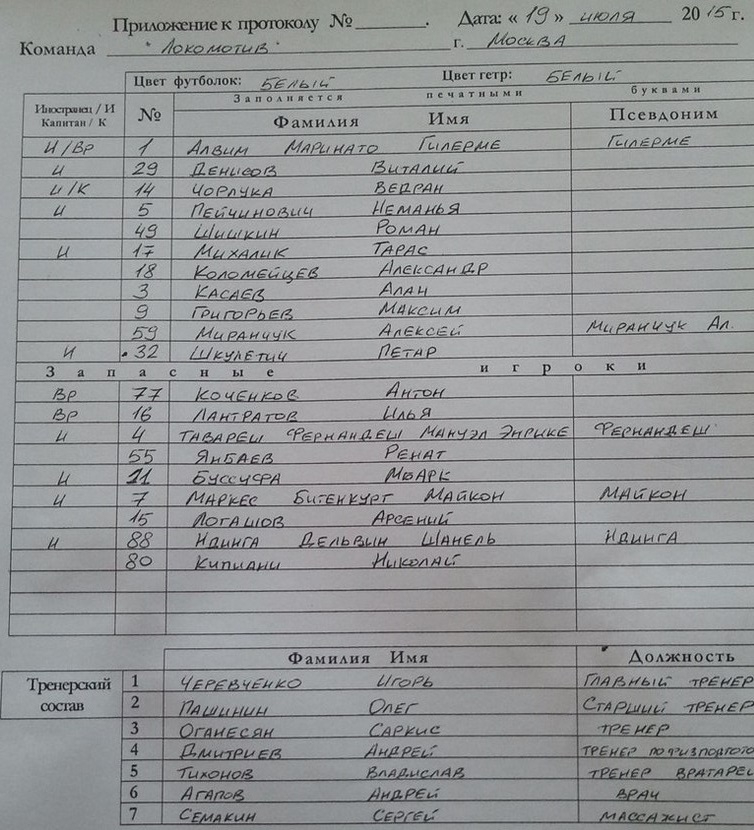 Приложение к протоколу № ______. Дата: « 19 » июля 2015 г.
Команда "Локомотив" г. Москва
Цвет футболок: БЕЛЫЙ Цвет гетр: БЕЛЫЙ
Заполняется печатными буквами
Иностранец / И Капитан / К № Фамилия Имя Псевдоним
И/Вр 1 Алвим Маринато Гилерме Гилерме
И 29 Денисов Виталий
И/К 14 Чорлука Ведран
И 5 Пейчинович Неманья
49 Шишкин Роман
И 17 Михалик Тарас
18 Коломейцев Александр
3 Касаев Алан
9 Григорьев Максим
59 Миранчук Алексей Миранчук Ал.
И 32 Шкулетич Петар
Запасные игроки
Вр 77 Коченков Антон
Вр 16 Лантратов Илья
И 4 Тавареш Фернандеш Мануэл Энрике Фернандеш
55 Янбаев Ренат
И 11 Буссуфа Мбарк
И 7 Маркес Битенкурт Майкон Майкон
15 Логашов Арсений
И 88 Ндинга Дельвин Шанель Ндинга
80 Кипиани Николай
Фамилия Имя Должность
Тренерский состав
1 Черевченко Игорь Главный тренер
2 Пашинин Олег Старший тренер
3 Оганесян Саркис тренер
4 Дмитриев Андрей тренер по физподгото
5 Тихонов Владислав тренер вратарей
6 Агапов Андрей врач
7 Семакин Сергей массажист